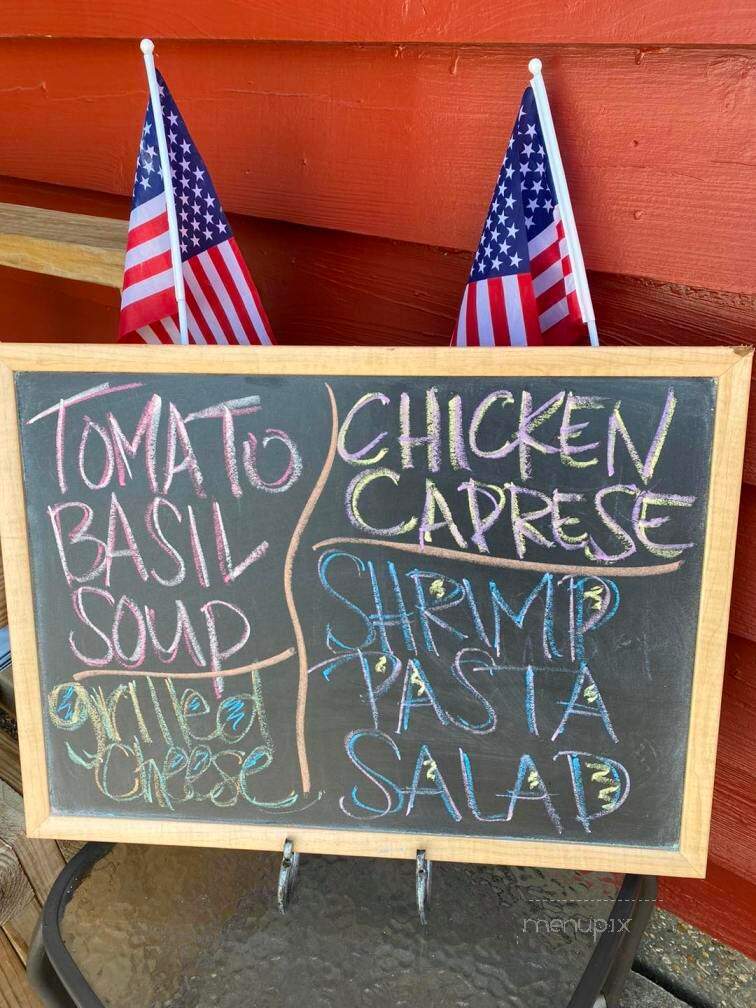 TOMATO
BASIL
SOUP
grilled
cheese
CHICKEN
CAPRESE
SHRIMP
PASTA
SALAD
menupix